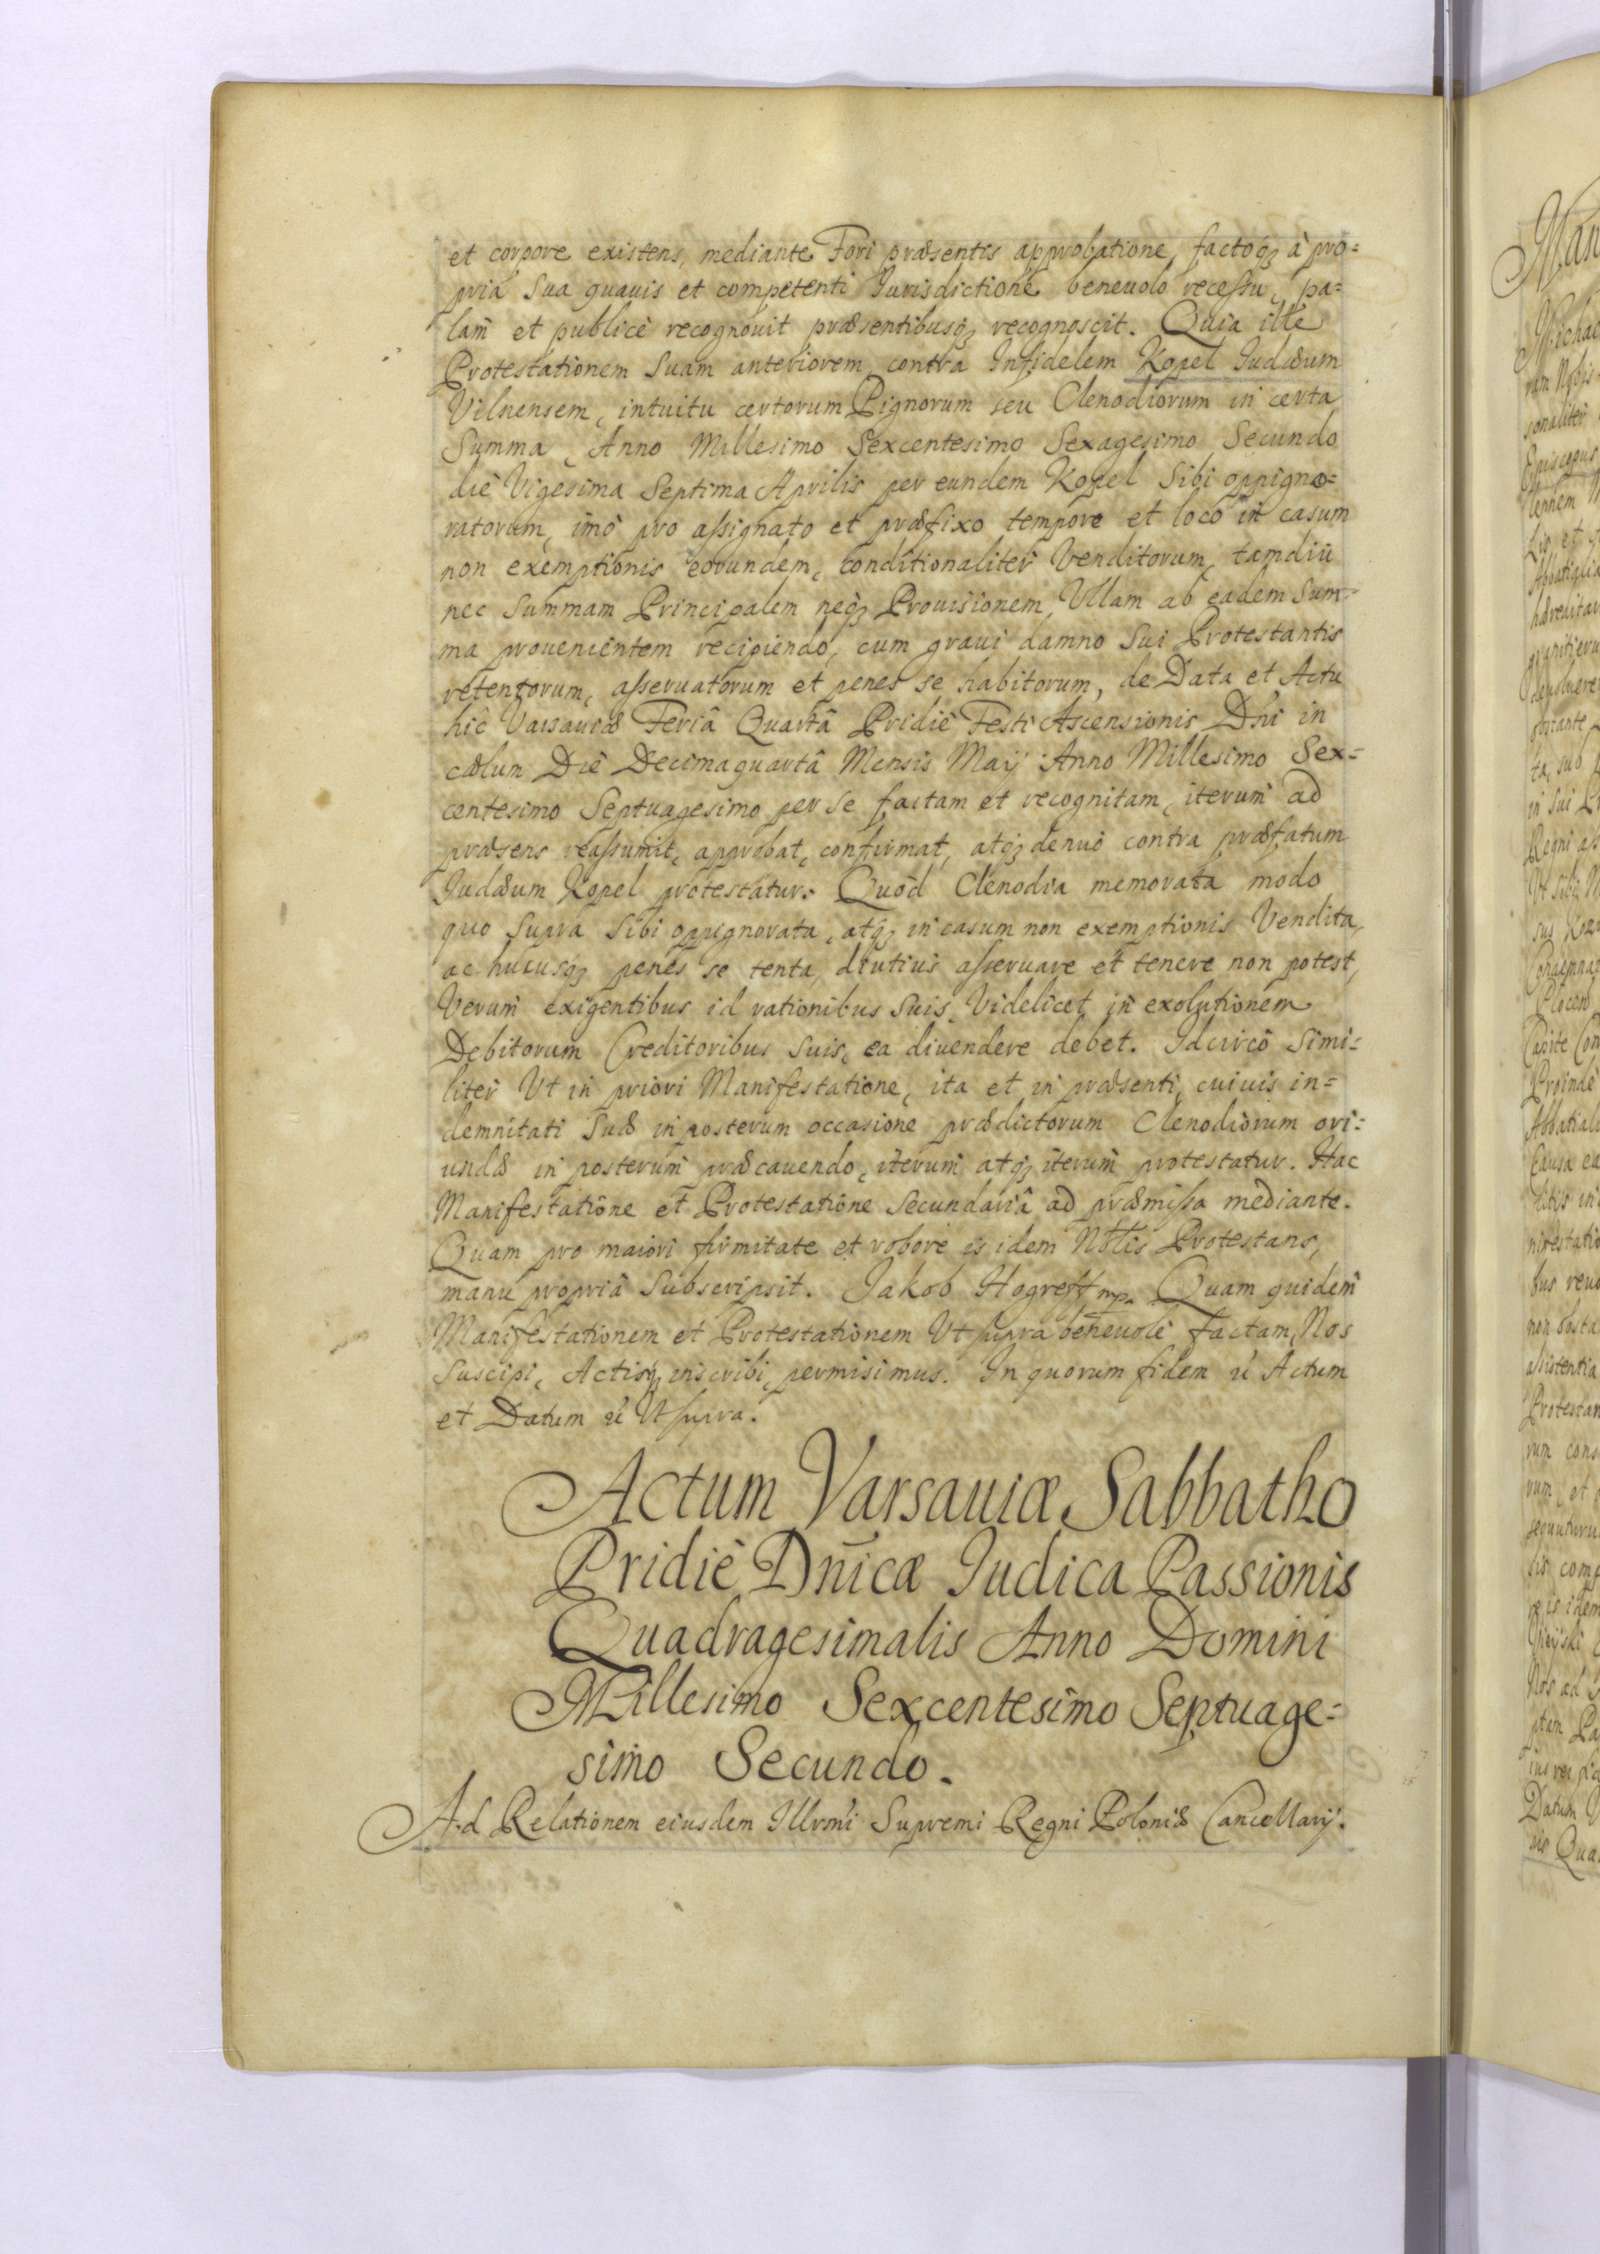 et corpore existens, mediante Fori præsentis approbatione, factoq; à pro=
pria sua quavis et competenti Iurisdictione benevolo recessu, pa=
lam et publicè recognovit præsentibusq; recognoscit. Quia ille
Protestationem suam anteriorem contra Infidelem Kopel Iudæum
Vilnensem, intuitu certorum Pignorum seu Clenodiorum in certa
Summa, Anno Millesimo Sexcentesimo Sexagesimo Secundo
die Vigesima Septima Aprilis per eundem Kopel Sibi oppigno=
ratorum, imò pro assignato et præfixo tempore et loco in casum
non exemptionis eorundem, conditionaliter Venditorum, tamdiu
nec Summam Principalem neq; Provisionem, Ullam ab eadem Sum=
ma provenientem recipiendo, cum gravi damno Sui Protestantis
retentorum, asservatorum et penes se habitorum, de Data et Actu
hîc Varsaviæ Feriâ Quartâ Pridiè Festi Ascensionis Dñi in
cælum Diê Decimaquartâ Mensis Maij Anno Millesimo Sex=
centesimo Septuagesimo per se factam et recognitam, iterum ad
præsens reassumit, approbat, confirmat, atq; denuò contra præfatum
Iudæum Kopel protestatur. Quòd Clenodia memorata modo
quo supra sibi oppignorata, atq; in casum non exemptionis Vendita,
ac hucusq; penes se tenta, diutius asservare et tenere non potest,
Verum exigentibus id rationibus suis, Videlicet in exolutionem
Debitorum Creditoribus suis, ea divendere debet. Idcircò simi=
liter Ut in priori Manifestatione, ita et in præsenti, cuivis in=
demnitati Suæ in posterum occasione prædictorum Clenodiorum ori=
undæ in posterum præcavendo, iterum atq; iterum protestatur. Hac
Manifestatione et Protestatione secundariâ ad præmissa mediante.
Quam pro maiori firmitate et robore is idem Nobĺis Protestans,
manu propriâ Subscripsit. Jakob Hogreff mp. Quam quidem
Manifestationem et Protestationem Ut supra benevolè factam, Nos
suscipi, Actisq; inscribi, permisimus. In quorum fidem &c Actum
et Datum &c Ut supra.
Actum Varsaviæ Sabbatho
Pridiè Dnicæ Iudica Passionis
Quadragesimalis Anno Domini
Millesimo Sexcentesimo Septuage=
simo Secundo.
Ad Relationem eiusdem Illrmi Supremi Regni Poloniæ Cancellarij.